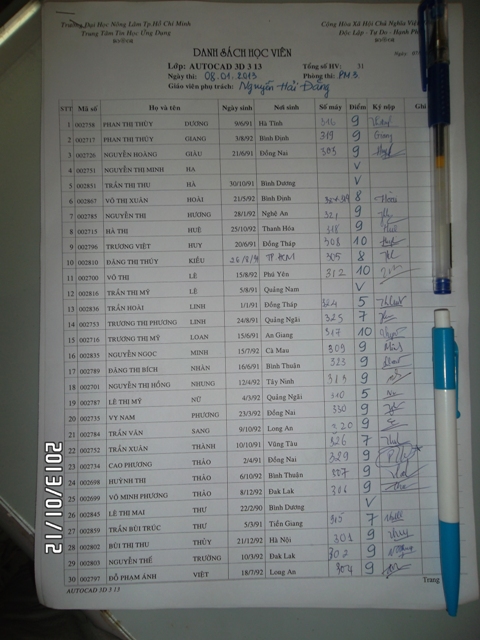 Trường Đại Học Nông Lâm Tp.Hồ Chí Minh
Trung Tâm Tin Học Ứng Dụng
Cộng Hòa Xã Hội Chủ Nghĩa Việt
Độc Lập - Tự Do - Hạnh Ph
DANH SÁCH HỌC VIÊN
Lớp: AUTOCAD 3D 3 13 Tổng số HV: 31
Ngày thi: 08.01.2013 Phòng thi: PM3
Giáo viên phụ trách: Nguyễn Hải Đăng
STT Mã số Họ và tên Ngày sinh Nơi sinh Số máy Điểm Ký nộp Ghi
1 002758 PHAN THỊ THÙY DƯƠNG 9/6/91 Hà Tĩnh 9
2 002717 PHAN THỊ THÙY GIANG 3/8/92 Bình Định 319 9 Giang
3 002726 NGUYỄN HOÀNG GIÀU 21/6/91 Đồng Nai 305 9
4 002751 NGUYỄN THỊ MINH HÀ V
5 002831 TRẦN THỊ THU HÀ 30/10/91 Bình Dương V
6 002867 VÕ THỊ XUÂN HOÀI 21/5/92 Bình Định 8
7 002785 NGUYỄN THỊ HƯƠNG 28/1/92 Nghệ An 321 9
8 002715 HÀ THỊ HUỆ 25/10/92 Thanh Hóa 318 9
9 002796 TRƯƠNG VIỆT HUY 20/6/91 Đồng Tháp 308 10
10 002810 ĐẶNG THỊ THÚY KIỀU 26/8/91 TP.HCM 305 8
11 002700 VÕ THỊ LÊ 15/8/92 Phú Yên 312 10
12 002816 TRẦN THỊ MỸ LỆ 5/8/91 Quảng Nam V
13 002836 TRẦN HOÀI LINH 1/1/91 Đồng Tháp 324 5
14 002753 TRƯƠNG THỊ PHƯƠNG LINH 24/8/91 Quảng Ngãi 325 7
15 002716 TRƯƠNG THỊ MỸ LOAN 15/6/91 An Giang 317 10
16 002835 NGUYỄN NGỌC MINH 15/7/92 Cà Mau 309 9 Minh
17 002789 ĐẶNG THỊ BÍCH NHÂN 16/6/91 Bình Thuận 323 9
18 002701 NGUYỄN THỊ HỒNG NHUNG 12/4/92 Tây Ninh 313 9
19 002787 LÊ THỊ MỸ NỮ 4/3/92 Quảng Ngãi 310 5
20 002735 VY NAM PHƯƠNG 23/3/92 Đồng Nai 330 9
21 002784 TRẦN VĂN SANG 9/10/92 Long An 320 9
22 002752 TRẦN XUÂN THÀNH 10/10/91 Vũng Tàu 326 7
23 002734 CAO PHƯƠNG THẢO 2/4/91 Đồng Nai 329 9
24 002698 HUỲNH THỊ THẢO 6/10/92 Bình Thuận 327 9
25 002699 VÕ MINH PHƯƠNG THẢO 8/12/92 Đak Lak 306 9
26 002845 LÊ THỊ MAI THƯ 22/2/90 Bình Dương V
27 002859 TRẦN BÙI TRÚC THƯ 5/3/91 Tiền Giang 315 7
28 002802 BÙI THỊ THU THỦY 21/12/92 Hà Nội 301 9
29 002803 NGUYỄN THẾ TRƯỜNG 10/3/92 Đak Lak 302 9
30 002797 ĐỖ PHẠM ÁNH VIỆT 18/7/92 Long An 304 9
AUTOCAD 3D 3 13 Trang
2013/01/12